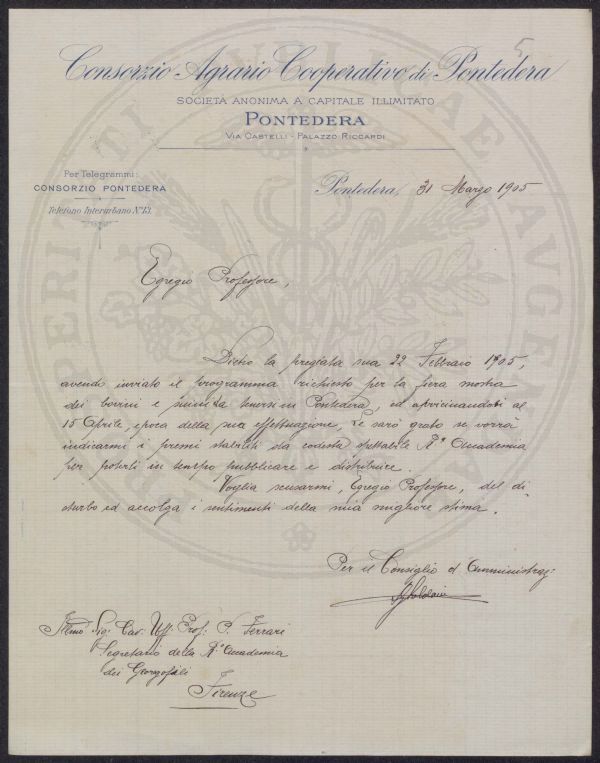 5
Consorzio Agrario Cooperativo di Pontedera
SOCIETÀ ANONIMA A CAPITALE ILLIMITATO
PONTEDERA
VIA CASTELLI - PALAZZO RICCARDI
Per Telegrammi:
CONSORZIO PONTEDERA
Telefono Interurbano N° 13.
Pontedera, 31 Marzo 1905
Egregio Professore,
Dietro la pregiata sua 22 Febbraio 1905,
avendo inviato il programma richiesto per la fiera mostra
dei bovini e suini da tenersi in Pontedera, ed avvicinandosi al
15 Aprile, epoca della sua effettuazione, Le sarò grato se vorrà
indicarmi i premi stabiliti da codesta spettabile Rª Accademia
per poterli in tempo pubblicare e distribuire.
Voglia scusarmi, Egregio Professore, del di
sturbo ed accolga i sentimenti della mia migliore stima.
Per il Consiglio d'Amministraz:
Illmo Sig: Cav. Uff. Prof: P. Ferrari
Segretario della Rª Accademia
dei Georgofili
Firenze